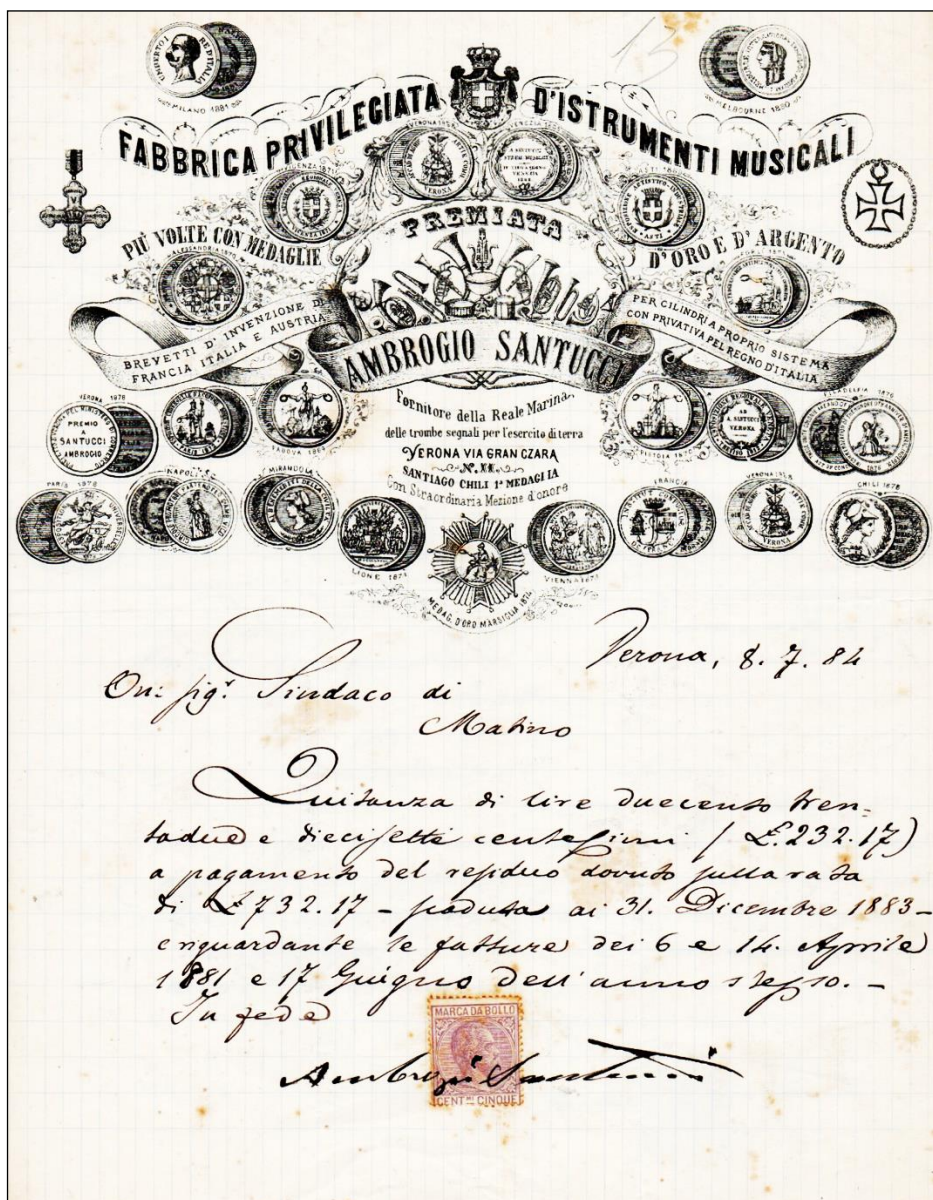 13
UMBERTO I RE D'ITALIA
MILANO 1881
MELBOURNE 1880
FABBRICA PRIVILEGIATA D'ISTRUMENTI MUSICALI
VERONA
PREMIATA
PIÙ VOLTE CON MEDAGLIE D'ORO E D'ARGENTO
BREVETTI D'INVENZIONE DI
FRANCIA ITALIA E AUSTRIA
PER CILINDRI A PROPRIO SISTEMA
CON PRIVATIVA PEL REGNO D'ITALIA
AMBROGIO SANTUCCI
Fornitore della Reale Marina,
delle trombe segnali per l'esercito di terra
VERONA VIA GRAN CZARA
SANTIAGO CHILI 1ª MEDAGLIA
Con Straordinaria Mezione d'onore
VERONA 1876
PREMIO A SANTUCCI AMBROGIO
AD A. SANTUCCI VERONA
PARIS 1878
NAPOLI
MIRANDOLA
FRANCIA
VERONA
CHILI 1876
LIONE
VIENNA 1873
MEDAG. D'ORO MARSIGLIA 1874
Verona, 8. 7. 84
On: sigr. Sindaco di
Matino
Quitanza di lire duecento tren-
tadue e diecisette centesimi (£.232.17)
a pagamento del residuo dovuto sulla rata
di £732.17 - scaduta ai 31. Dicembre 1883 -
e riguardante le fatture dei 6 e 14. Aprile
1881 e 17 Guigno dell'anno stesso. -
In fede
MARCA DA BOLLO
Ambrogio Santucci
CENT.MI CINQUE